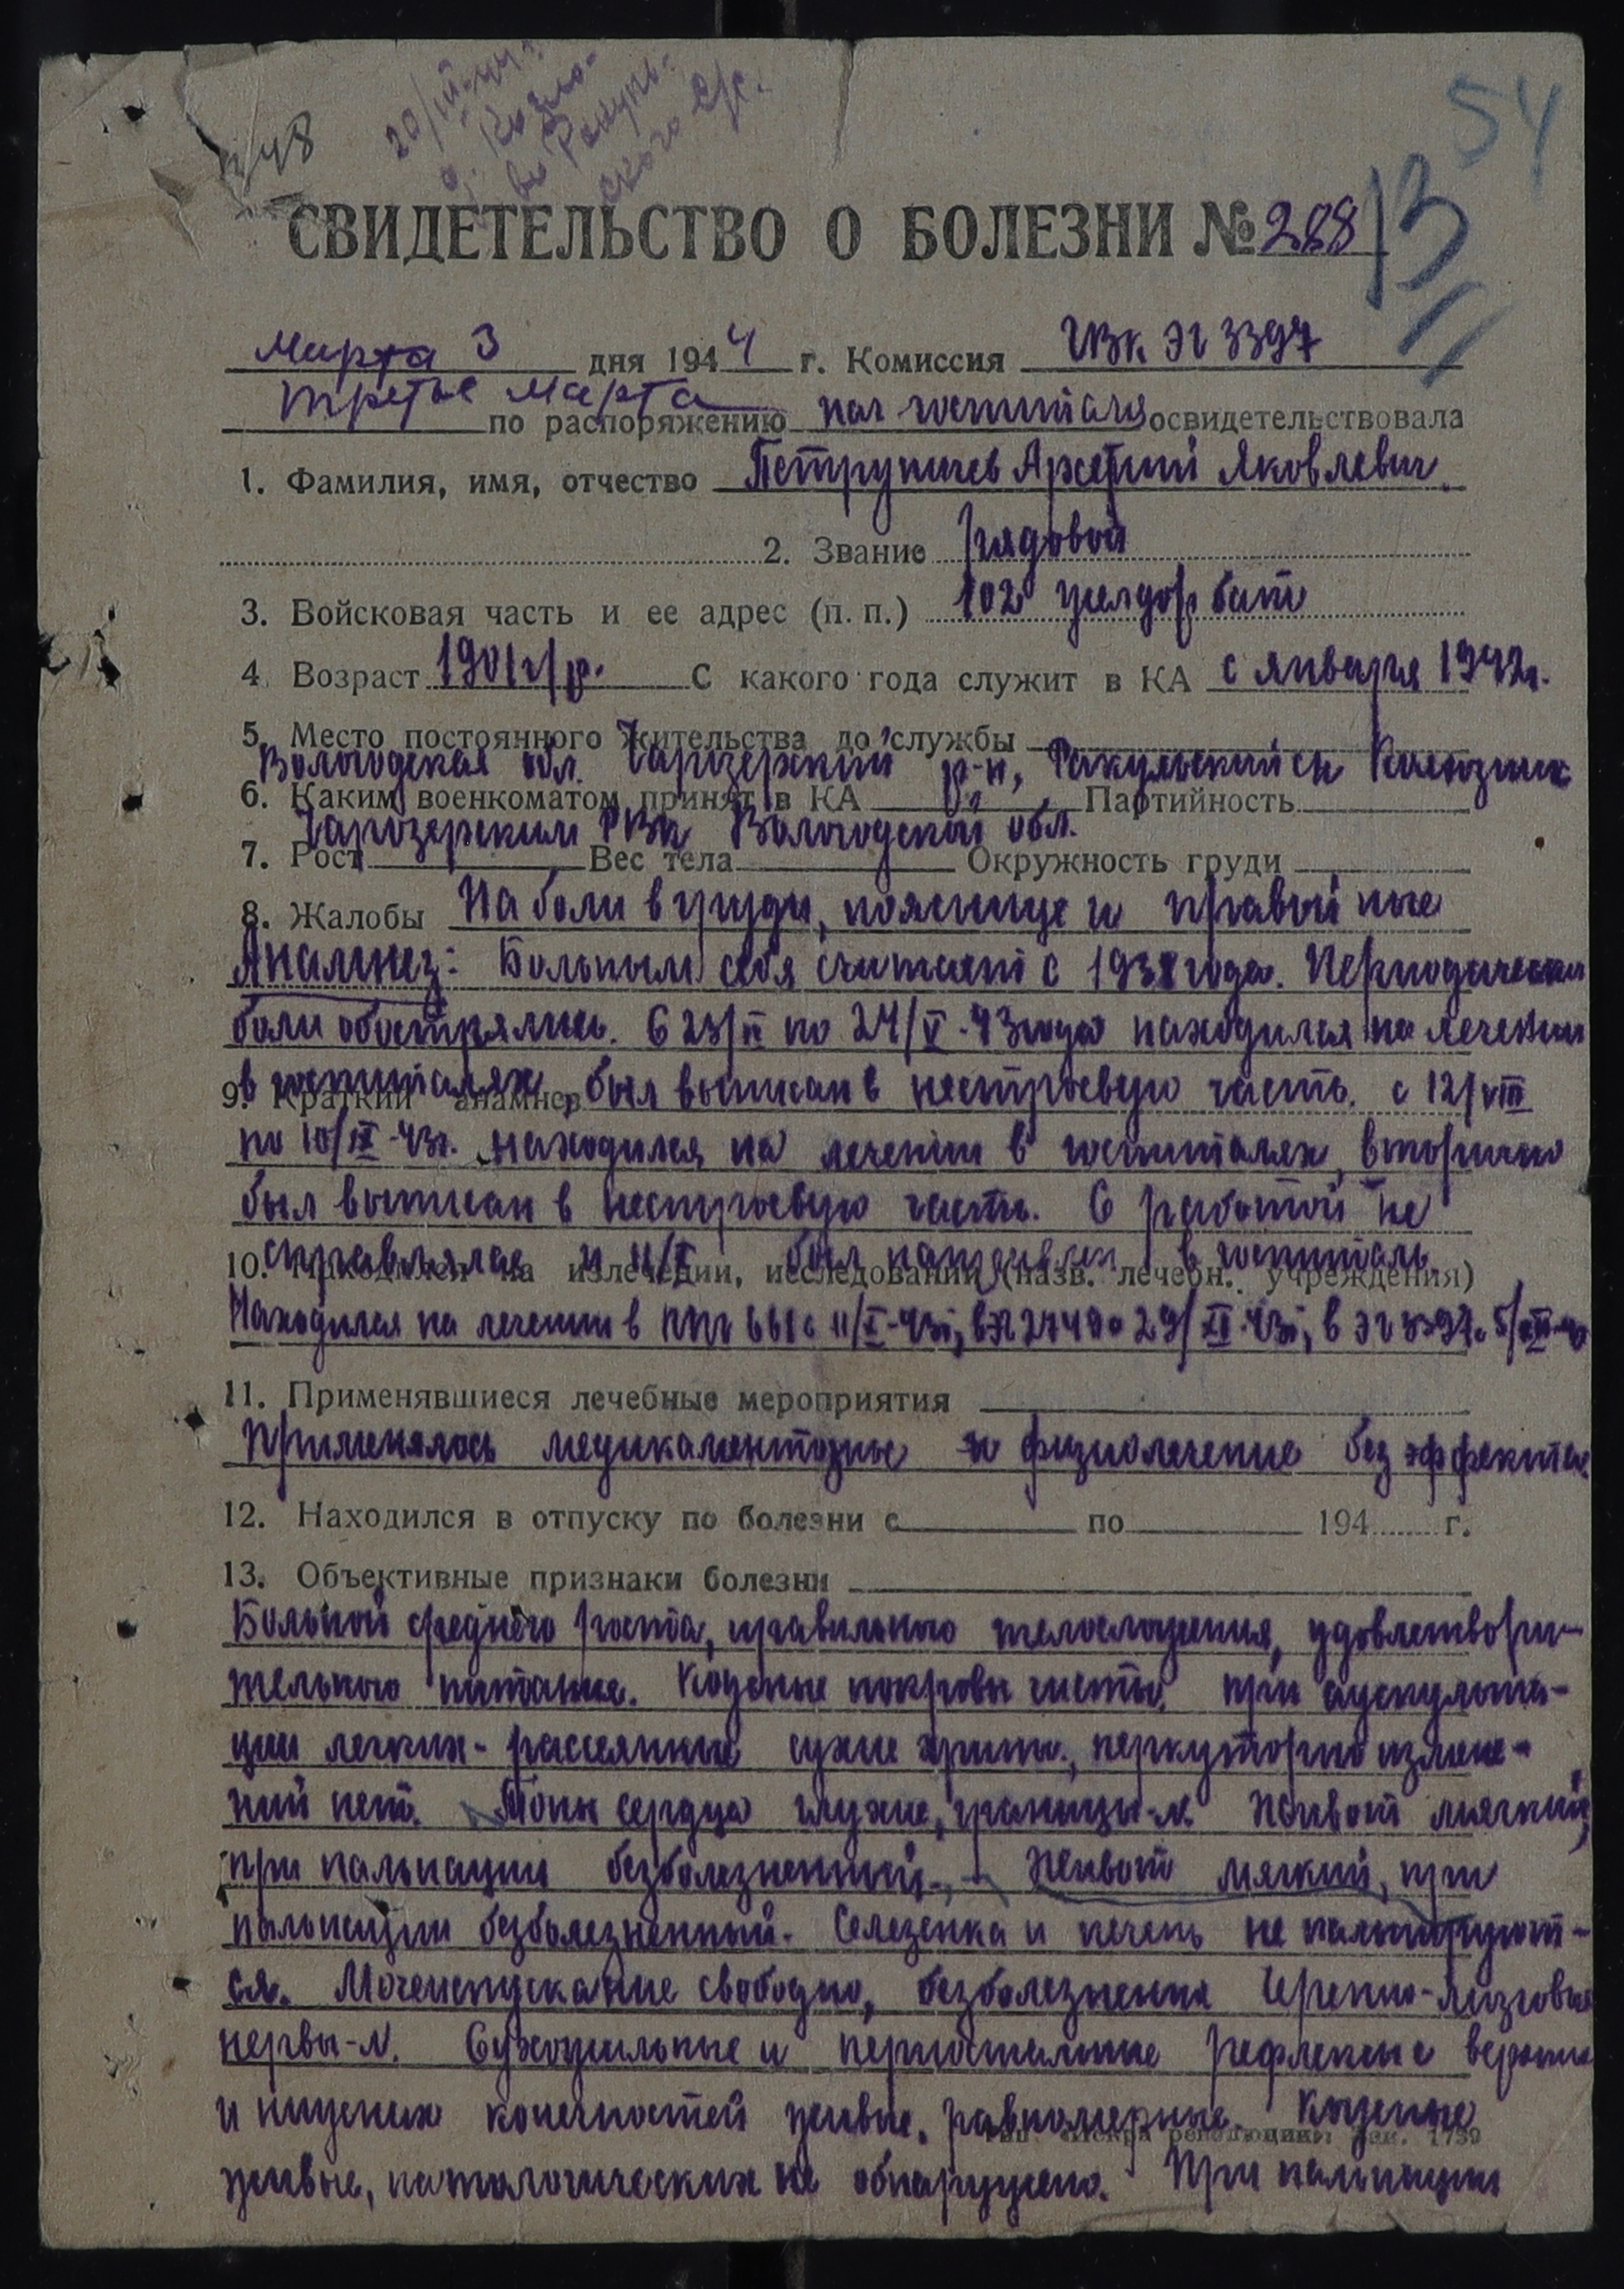 54
13
348
20/III-44г.
СВИДЕТЕЛЬСТВО О БОЛЕЗНИ № 288
Марта 3 дня 1944 г. Комиссия ГВК ЭГ 3397
третье Марта по распоряжению нач госпиталя освидетельствовала
1. Фамилия, имя, отчество Петруничев Яковлевич
2. Звание Рядовой
3. Войсковая часть и ее адрес (п. п.) 102 желдор бат
4. Возраст 1901 г/р. С какого года служит в КА с января 1942г.
5. Место постоянного жительства до службы
Вологодская обл. Чарозерский р-н,
6. Каким военкоматом принят в КА Партийность
Чарозерским РВК Вологодской обл.
7. Рост Вес тела Окружность груди
8. Жалобы На боли в груди, пояснице и правой ноге
Анамнез: Больным себя считает с 1938 года. Периодически
боли обострялись. С 23/II по 24/V-43 года находился на лечении
в госпиталях, был выписан в нестроевую часть. с 12/VIII
9. Краткий анамнез
по 10/IX-43г. находился на лечении в госпиталях, вторично
был выписан в нестроевую часть. С работой не
справлялся и 11/X был направлен в госпиталь.
10. Находился на излечении, исследовании (назв. лечебн. учреждения)
Находился на лечении в ППГ 661 с 11/X-43г, в ЭГ 2740 с 29/XI-43г, в ЭГ 3397 с 5/XII-43
11. Применявшиеся лечебные мероприятия
Применялось медикаментозное и физиолечение без эффекта
12. Находился в отпуску по болезни с по 194 г.
13. Объективные признаки болезни
Больной среднего роста, правильного телосложения, удовлетвори-
тельного питания. Кожные покровы чисты. при аускульта-
ции легких - рассеянные сухие хрипы, перкуторно измене-
ний нет. Тоны сердца глухие, границы-N. Живот мягкий,
при пальпации безболезненный. Живот мягкий, при
пальпации безболезненный. Селезенка и печень не пальпируют-
ся. Мочеиспускание свободно, безболезненно Черепно-мозговые
нервы-N. Сухожильные и периостальные рефлексы с верхних
и нижних конечностей живые, равномерные. Кожные
Тип. «Искра революции» Зак. 1739
живые, патологических не обнаружено. При пальпации